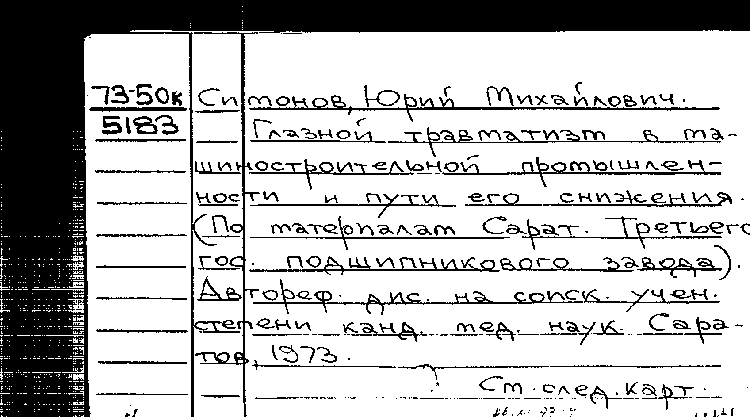 73-50к Симонов, Юрий Михайлович.
5183 Глазной травматизм в ма-
шиностроительной промышлен-
ности и пути его снижения.
(По материалам Сарат. Третьего
гос. подшипникового завода).
Автореф. дис. на соиск. учен.
степени канд. мед. наук. Сара-
тов, 1973.
См. след. карт.